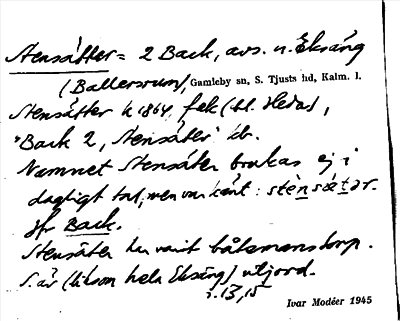 Stensätter = 2 Back, avs. u. Eksäng
(Ballersrum), Gamleby sn, S. Tjusts hd, Kalm. l.
Stensätter k 1864, fek (bl. Hedas),
"Back 2, Stensäter" kb.
Namnet Stensäter brukas ej i
dagligt tal, men var känt: stènsætər.
Jfr Back.
Stensäter har varit båtsmanstorp.
S. är (liksom hela Eksäng) utjord.
i. 13, 15
Ivar Modéer 1945